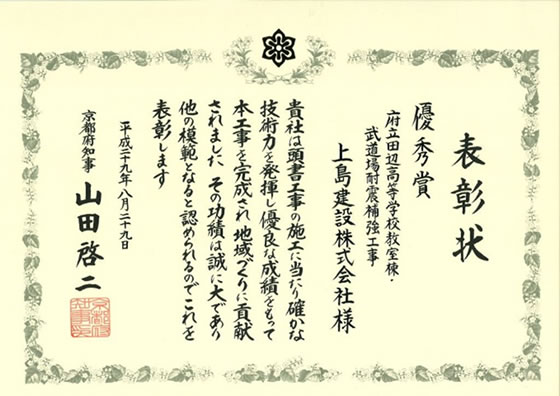 表彰状
優秀賞
府立田辺高等学校教室棟・
武道場耐震補強工事
上島建設株式会社様
貴社は頭書工事の施工に当たり確かな
技術力を発揮し優良な成績をもって
本工事を完成され地域づくりに貢献
されました その功績は誠に大であり
他の模範となると認められるのでこれを
表彰します
平成二十九年八月二十九日
京都府知事 山田啓二
京都府
知事印